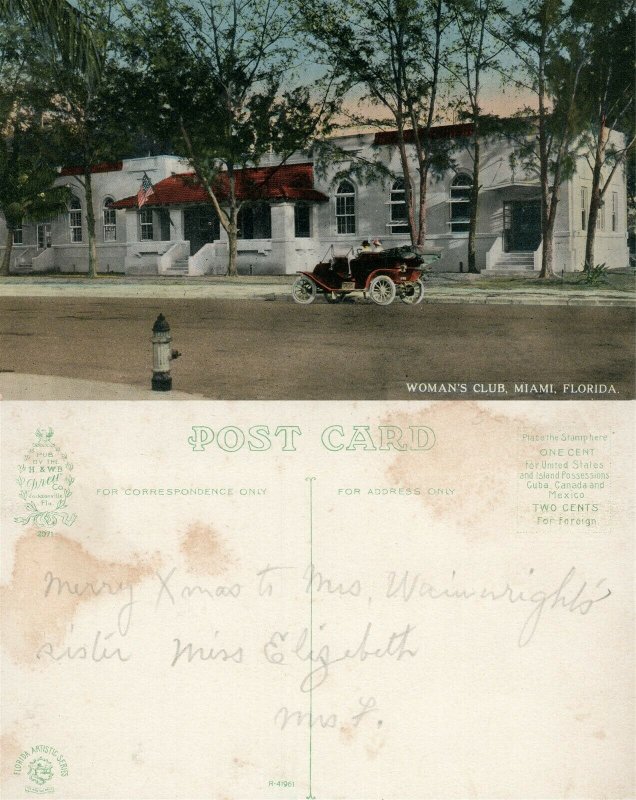 WOMAN'S CLUB, MIAMI, FLORIDA.
POST CARD
PUB
BY THE
H. & W.B.
Drew
Co.
Jacksonville
Fla.
FOR CORRESPONDENCE ONLY
FOR ADDRESS ONLY
Place the Stamp here
ONE CENT
for United States
and Island Possessions
Cuba, Canada and
Mexico
TWO CENTS
For Foreign
Merry Xmas to Mrs. Wainwrights'
sister Miss Elizabeth
Mrs F.
FLORIDA ARTISTIC SERIES
R-41961